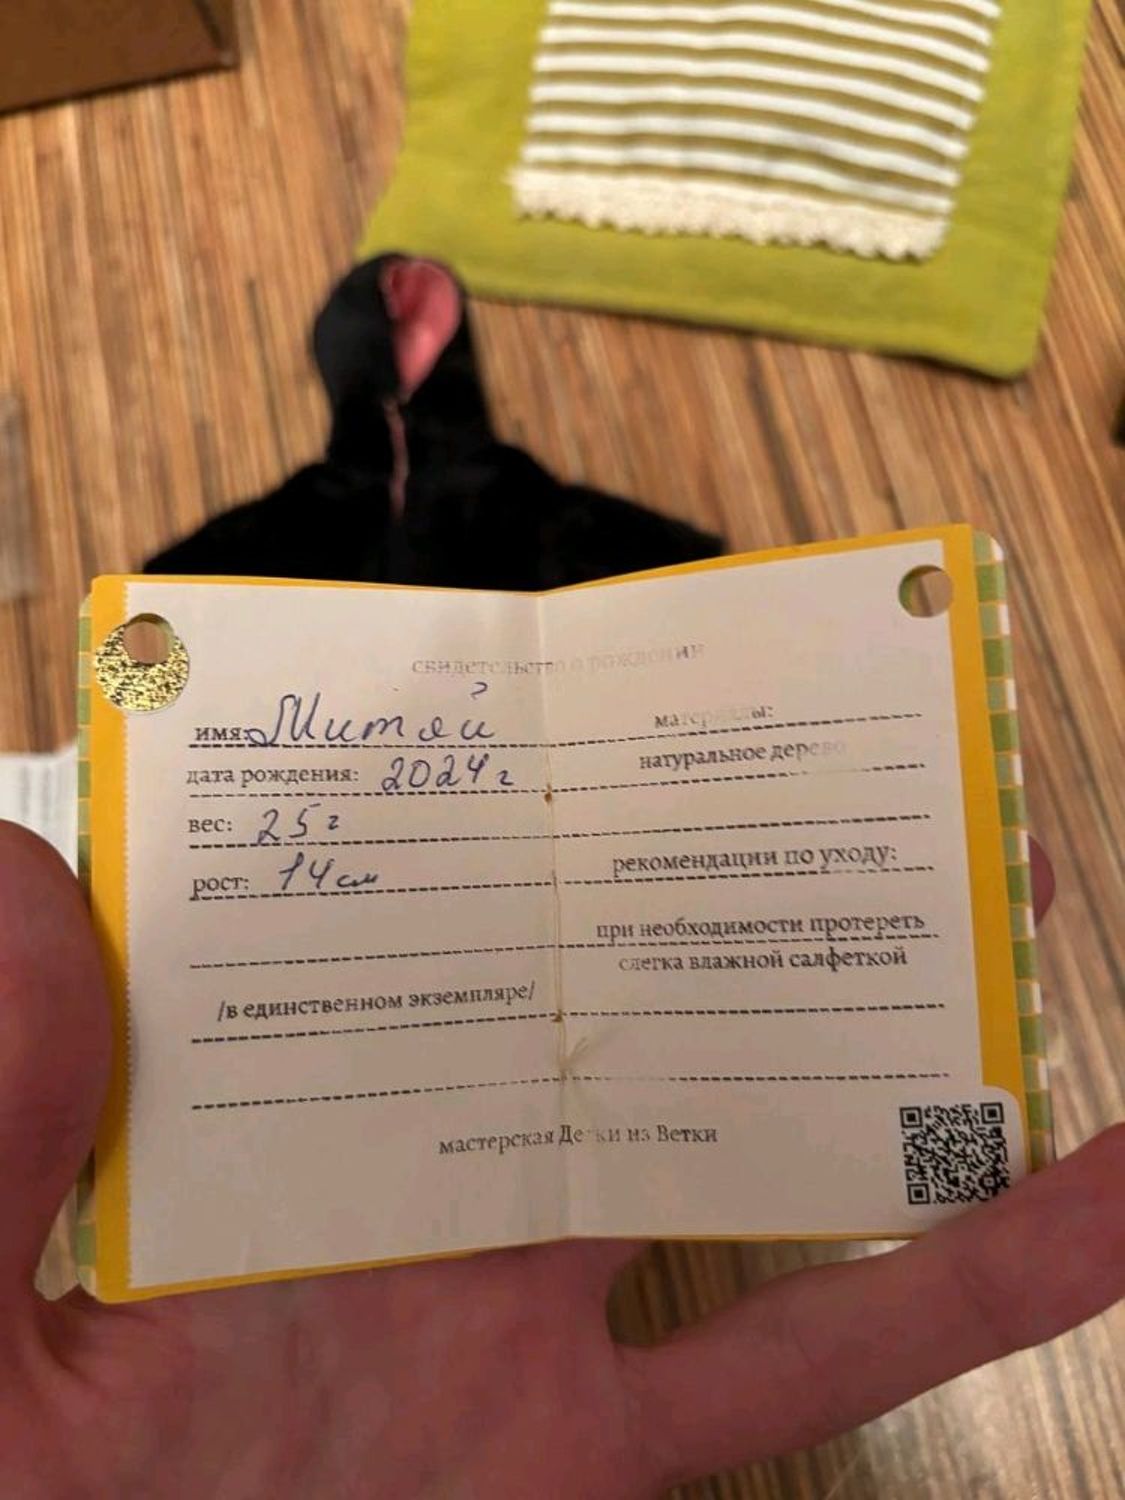 свидетельство о рождении
имя: Митяй
дата рождения: 2024 г
вес: 25 г
рост: 14 см
/в единственном экземпляре/
материалы:
натуральное дерево
рекомендации по уходу:
при необходимости протереть
слегка влажной салфеткой
мастерская Детки из Ветки